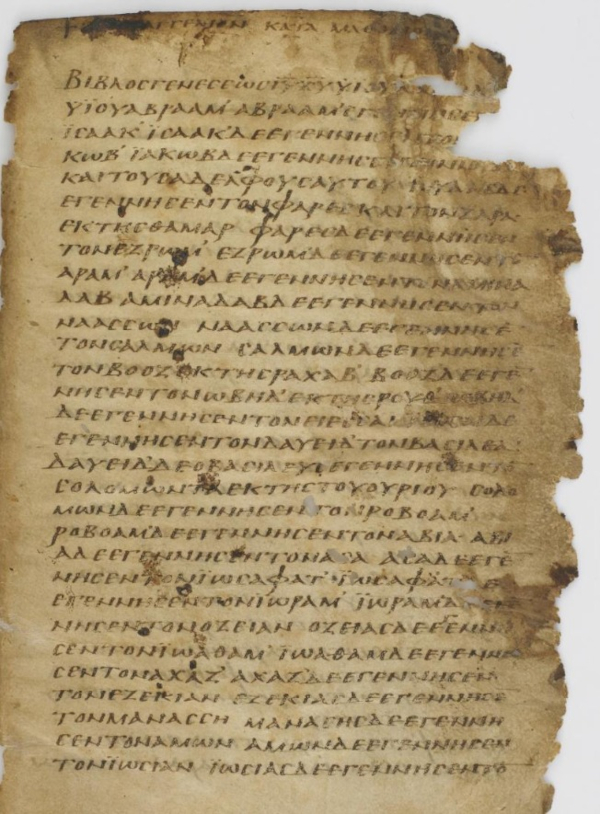 ΕΥΑΓΓΕΛΙΟΝ ΚΑΤΑ ΜΑΘ
ΒΙΒΛΟΣΓΕΝΕΣΕΩΣΙΥΧΥΥΙΟΥΔΑΥ
ΥΪΟΥΑΒΡΑΑΜ ΑΒΡΑΑΜ'ΕΓΕΝΝΗΣΕΝ
ΪΣΑΑΚ'ΪΣΑΑΚ'ΔΕΕΓΕΝΝΗΣΕΝΤΟΝ
ΚΩΒ' ΪΑΚΩΒΔΕΕΓΕΝΝΗΣΕ
ΚΑΙΤΟΥΣΑΔΕΛΦΟΥΣΑΥΤΟΥ ΙΟΥΔΑΣΔΕ
ΕΓΕΝΝΗΣΕΝΤΟΝΦΑΡΕΣΚΑΙΤΟΝΖΑΡΑ
ΕΚΤΗΣΘΑΜΑΡ ΦΑΡΕΣΔΕΕΓΕΝΝΗΣΕΝ
ΤΟΝΕΖΡΩΜ' ΕΖΡΩΜΔΕΕΓΕΝΝΗΣΕΝΤΟ
ΑΡΑΜ' ΑΡΑΜ'ΔΕΕΓΕΝΝΗΣΕΝΤΟΝΑΜΙΝΑ
ΔΑΒ ΑΜΙΝΑΔΑΒΔΕΕΓΕΝΝΗΣΕΝΤΟΝ
ΝΑΑΣΣΩΝ ΝΑΑΣΣΩΝΔΕΕΓΕΝΝΗΣΕ
ΤΟΝΣΑΛΜΩΝ ΣΑΛΜΩΝΔΕΕΓΕΝΝΗΣΕ
ΤΟΝΒΟΟΖ'ΕΚΤΗΣΡΑΧΑΒ' ΒΟΟΖΔΕΕΓΕ
ΝΗΣΕΝΤΟΝΩΒΗΔ'ΕΚΤΗΣΡΟΥΘ' ΩΒΗΔ
ΔΕΕΓΕΝΝΗΣΕΝΤΟΝΕΙΕΣΣΑΙ ΔΕ
ΕΓΕΝΝΗΣΕΝΤΟΝΔΑΥΕΙΔ'ΤΟΝΒΑΣΙΛΕΑ
ΔΑΥΕΙΔ'ΔΕΟΒΑΣΙΛΕΥΣΕΓΕΝΝΗΣΕΝΤΟ
ΣΟΛΟΜΩΝΤΑΕΚΤΗΣΤΟΥΟΥΡΙΟΥ ΣΟΛΟ
ΜΩΝΔΕΕΓΕΝΝΗΣΕΝΤΟΝΡΟΒΟΑΜ'
ΡΟΒΟΑΜΔΕΕΓΕΝΝΗΣΕΝΤΟΝΑΒΙΑ ΑΒΙ
ΔΕΕΓΕΝΝΗΣΕΝΤΟΝΑΣΑ ΑΣΑΔΕΕΓΕ
ΝΗΣΕΝΤΟΝΪΩΣΑΦΑΤ' ΪΩΣΑΦΑΤΔΕ
ΕΓΕΝΝΗΣΕΝΤΟΝΪΩΡΑΜ' ΪΩΡΑΜΔΕΕΓΕ
ΝΗΣΕΝΤΟΝΟΖΕΙΑΝ ΟΖΕΙΑΣΔΕΕΓΕΝΝΗ
ΣΕΝΤΟΝΪΩΑΘΑΜ' ΪΩΑΘΑΜΔΕΕΓΕΝΝΗ
ΣΕΝΤΟΝΑΧΑΖ' ΑΧΑΖ'ΔΕΕΓΕΝΝΗΣΕΝ
ΤΟΝΕΖΕΚΙΑΝ ΕΖΕΚΙΑΣΔΕΕΓΕΝΝΗΣΕ
ΤΟΝΜΑΝΑΣΣΗ ΜΑΝΑΣΗΣΔΕΕΓΕΝΝΗ
ΣΕΝΤΟΝΑΜΩΝ ΑΜΩΝΔΕΕΓΕΝΝΗΣΕΝ
ΤΟΝΪΩΣΙΑΝ ΪΩΣΙΑΣΔΕΕΓΕΝΝΗΣΕΝΤΟ